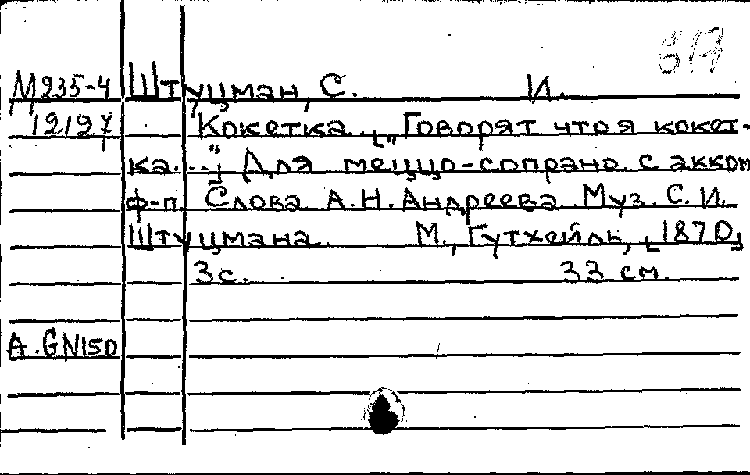 М235-4 Штуцман, С. И.
12127 Кокетка. [„Говорят что я кокет-
ка...“] Для меццо-сопрано с акком
ф-п. Слова А.Н. Андреева Муз. С. И.
Штуцмана. М., Гутхейль, [1870]
3с. 33 см.
A. GN150